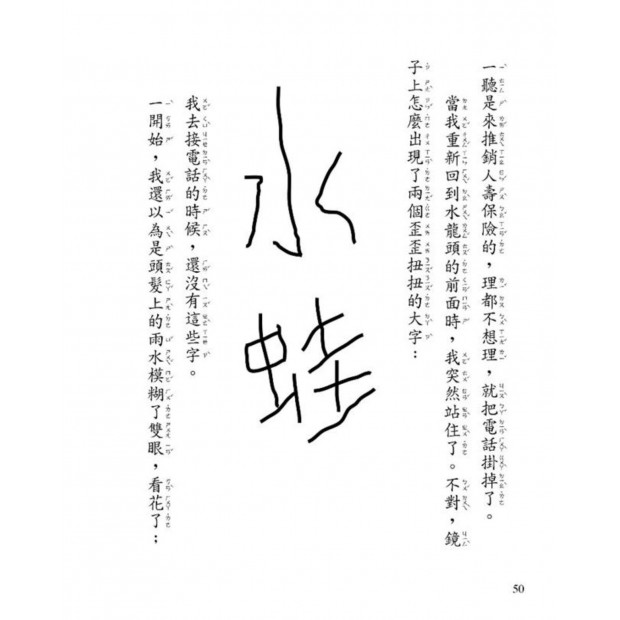 一聽是來推銷人壽保險的，理都不想理，就把電話掛掉了。
當我重新回到水龍頭的前面時，我突然站住了。不對，鏡
子上怎麼出現了兩個歪歪扭扭的大字：
水蛙
我去接電話的時候，還沒有這些字。
一開始，我還以為是頭髮上的雨水模糊了雙眼，看花了；
50